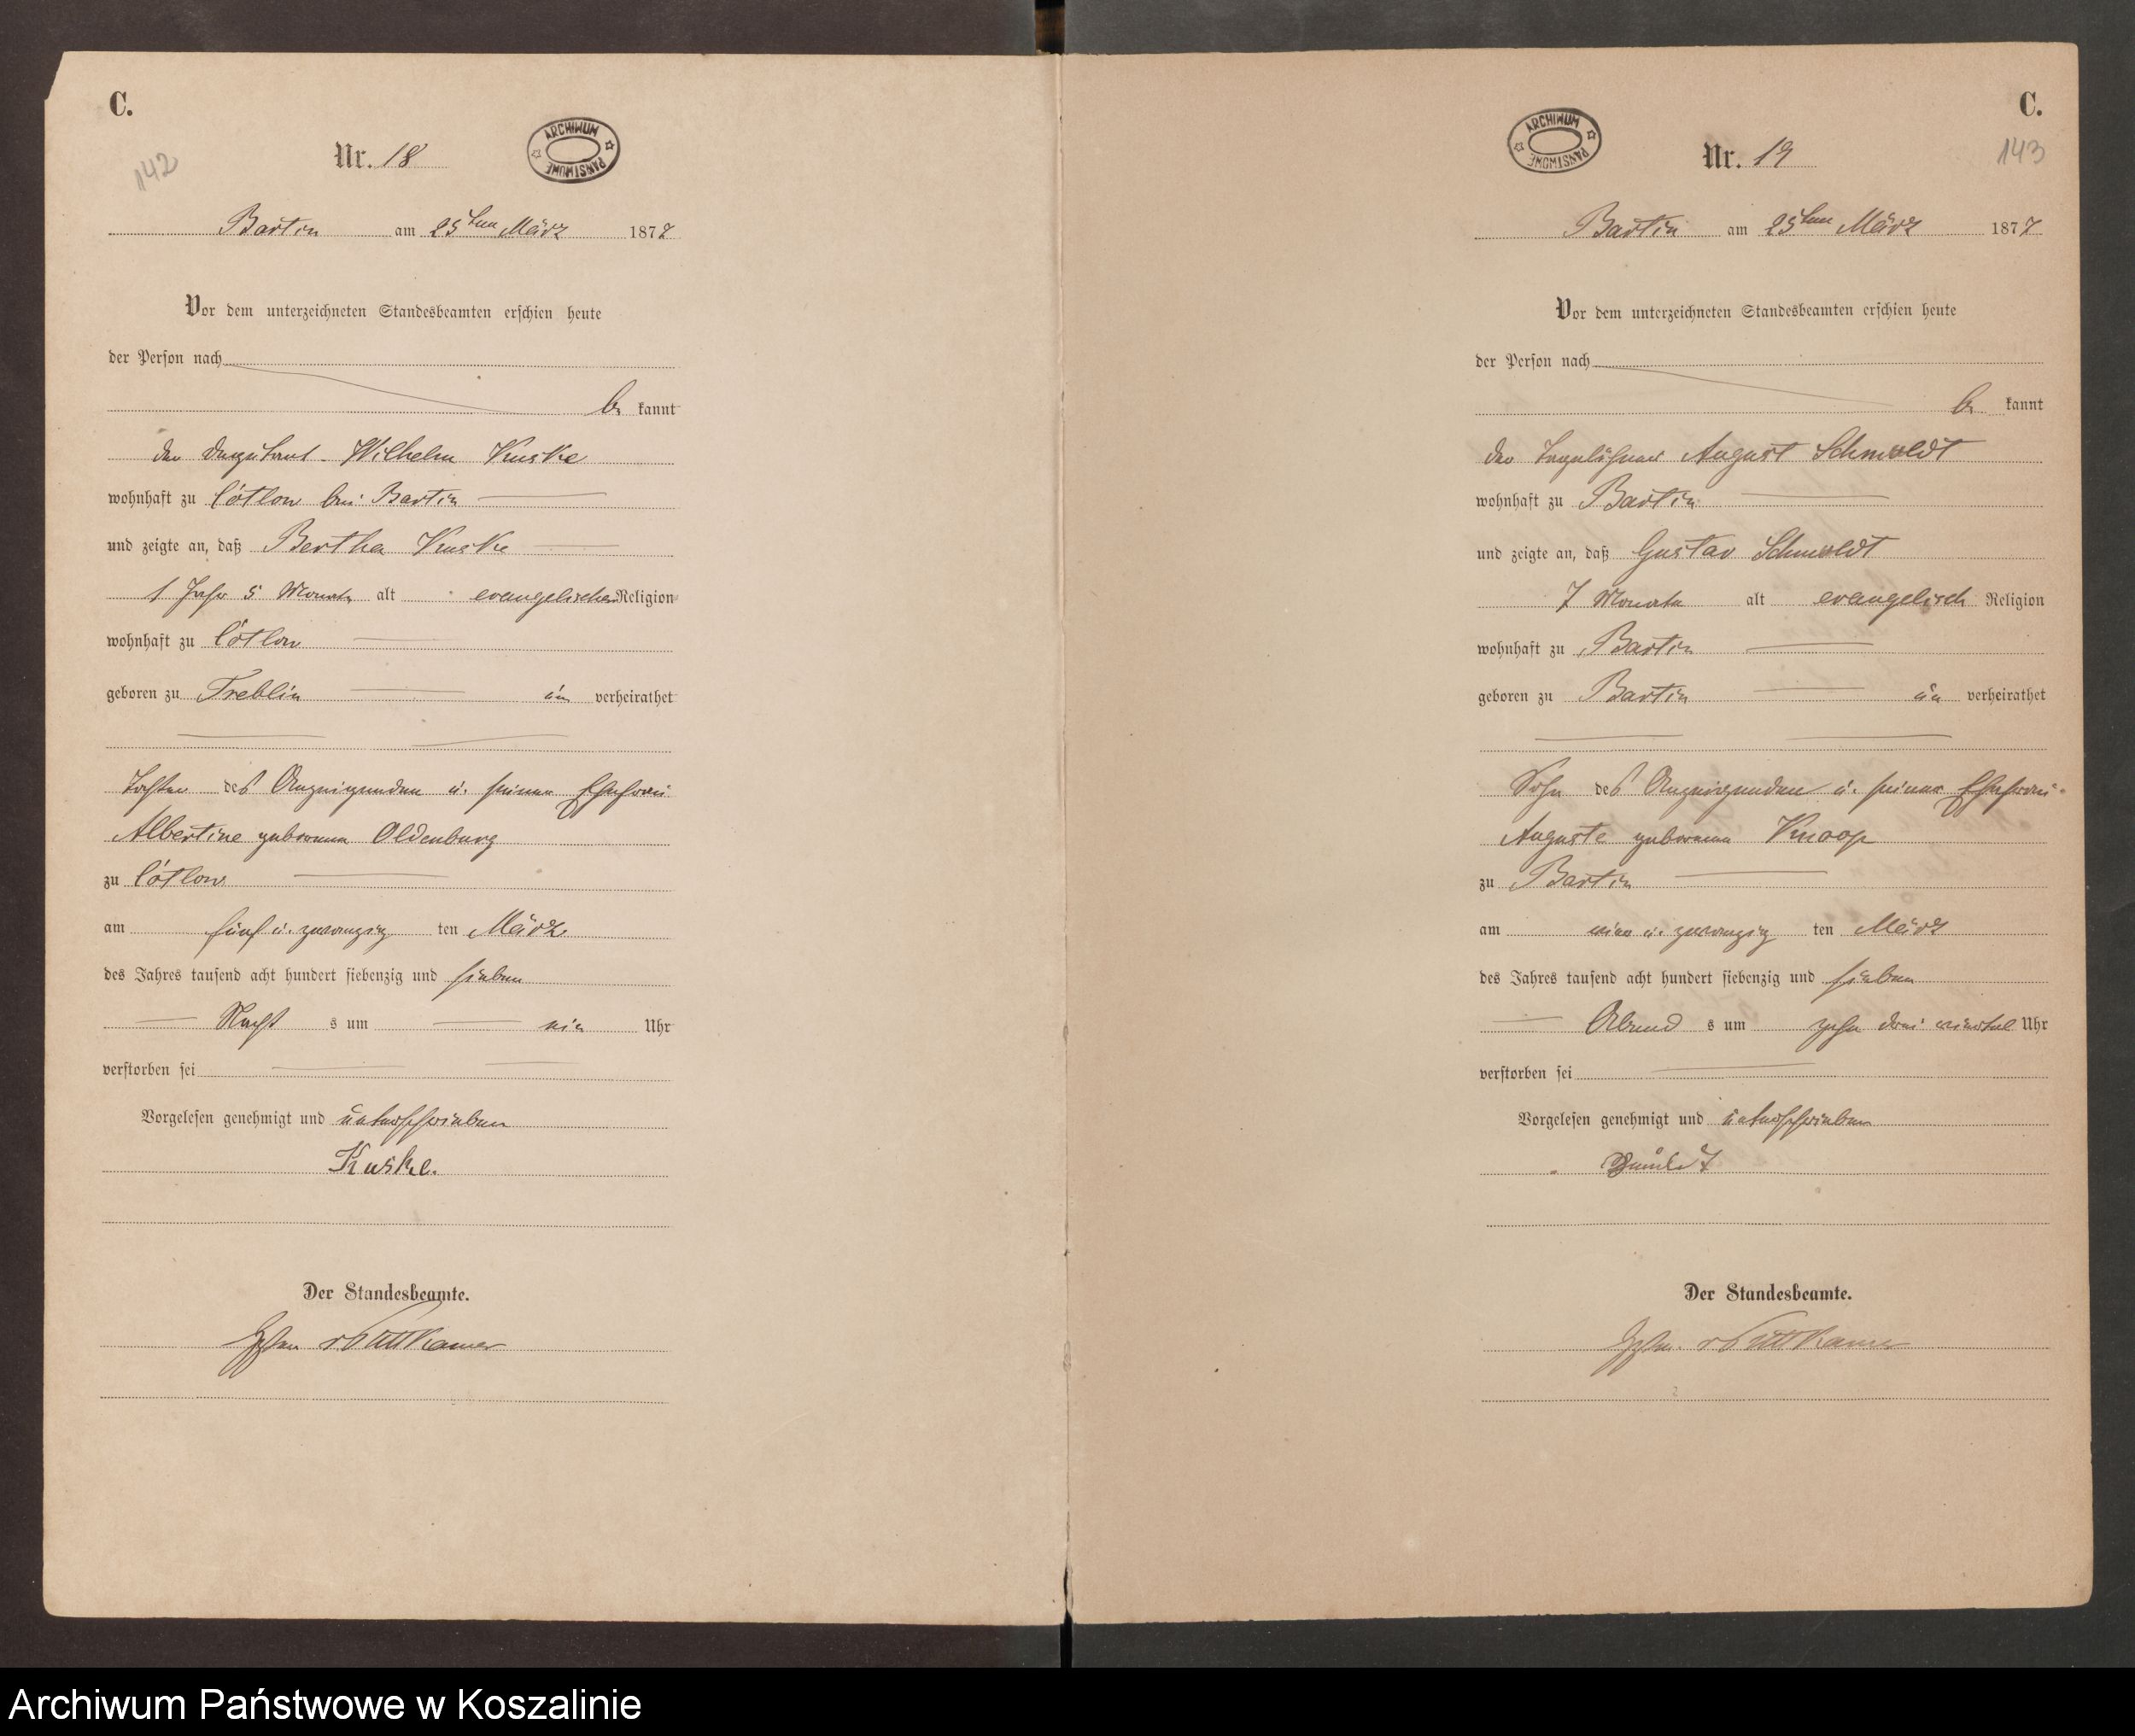 C.
142
Nr. 18
ARCHIWUM PAŃSTWOWE
Bartin am 25ten März 1877
Vor dem unterzeichneten Standesbeamten erschien heute
der Person nach
be kannt
der Deputant Wilhelm Kuske
wohnhaft zu Cötlow bei Bartin
und zeigte an, daß Bertha Kuske
1 Jahr 5 Monate alt evangelischer Religion
wohnhaft zu Cötlow
geboren zu Treblin un verheirathet
Tochter des Anzeigenden u. seiner Ehefrau
Albertine geborenen Oldenburg
zu Cötlow
am fünf u. zwanzig ten März
des Jahres tausend acht hundert siebenzig und sieben
Nacht s um ein Uhr
verstorben sei
Vorgelesen genehmigt und unterschrieben
Kuske.
Der Standesbeamte.
v Puttkamer
C.
143
Nr. 19
ARCHIWUM PAŃSTWOWE
Bartin am 25ten März 1877
Vor dem unterzeichneten Standesbeamten erschien heute
der Person nach
be kannt
der Tagelöhner August Schmoldt
wohnhaft zu Bartin
und zeigte an, daß Gustav Schmoldt
7 Monate alt evangelisch Religion
wohnhaft zu Bartin
geboren zu Bartin un verheirathet
Sohn des Anzeigenden u. seiner Ehefrau
Auguste geborenen Knoop
zu Bartin
am vier u. zwanzig ten März
des Jahres tausend acht hundert siebenzig und sieben
Abend s um zehn drei viertel Uhr
verstorben sei
Vorgelesen genehmigt und unterschrieben
Der Standesbeamte.
v Puttkamer
Archiwum Państwowe w Koszalinie